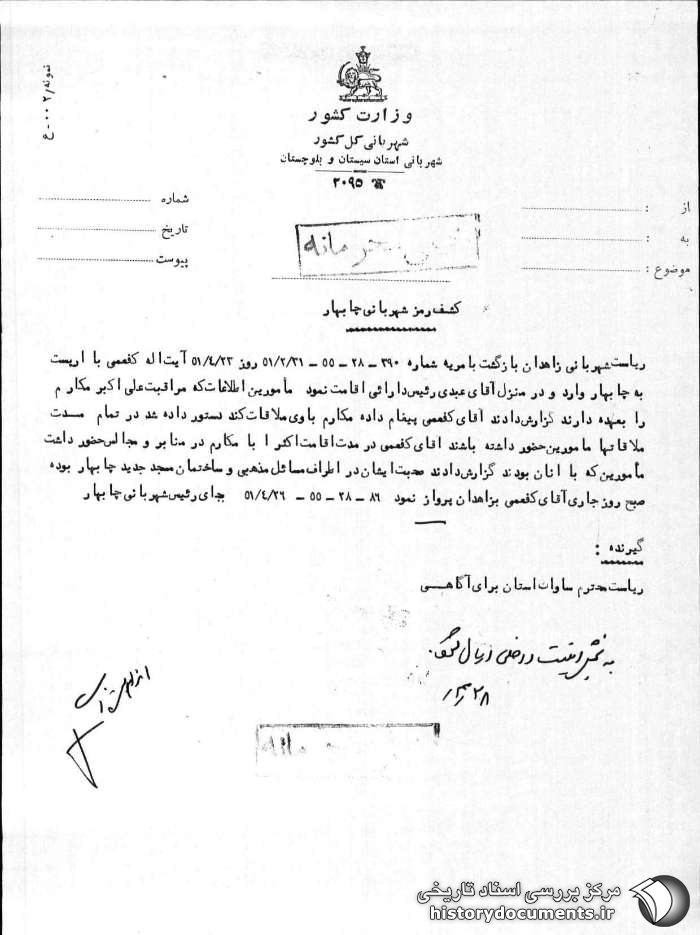 نمونه/۰۰۲-ع
وزارت کشور
شهربانی کل کشور
شهربانی استان سیستان و بلوچستان
☎ ۲۰۹۵
از :
به :
موضوع :
شماره
تاریخ
پیوست
محرمانه
کشف رمز شهربانی چابهار
ریاست شهربانی زاهدان بازگشت بامریه شماره ۳۹۰ – ۲۸ – ۵۵ – ۵۱/۲/۳۱ روز ۵۱/۴/۲۳ آیت اله کفعمی با اریست
به چابهار وارد و در منزل آقای عبدی رئیس دارائی اقامت نمود مأمورین اطلاعات که مراقبت علی اکبر مکارم
را بعهده دارند گزارش دادند آقای کفعمی پیغام داده مکارم باوی ملاقات کند دستور داده شد در تمام مدت
ملاقاتها مامورین حضور داشته باشند اقای کفعمی در مدت اقامت اکثرا با مکارم در منابر و مجالس حضور داشت
مأمورین که با انان بودند گزارش دادند صحبت ایشان در اطراف مسائل مذهبی و ساختمان مسجد جدید چابهار بوده
صبح روز جاری آقای کفعمی بزاهدان پرواز نمود ۸۶ – ۲۸ – ۵۵ – ۵۱/۴/۲۶ جای رئیس شهربانی چابهار
گیرنده :
ریاست محترم ساواک استان برای آگاهی
محرمانه
مرکز بررسی اسناد تاریخی
historydocuments.ir